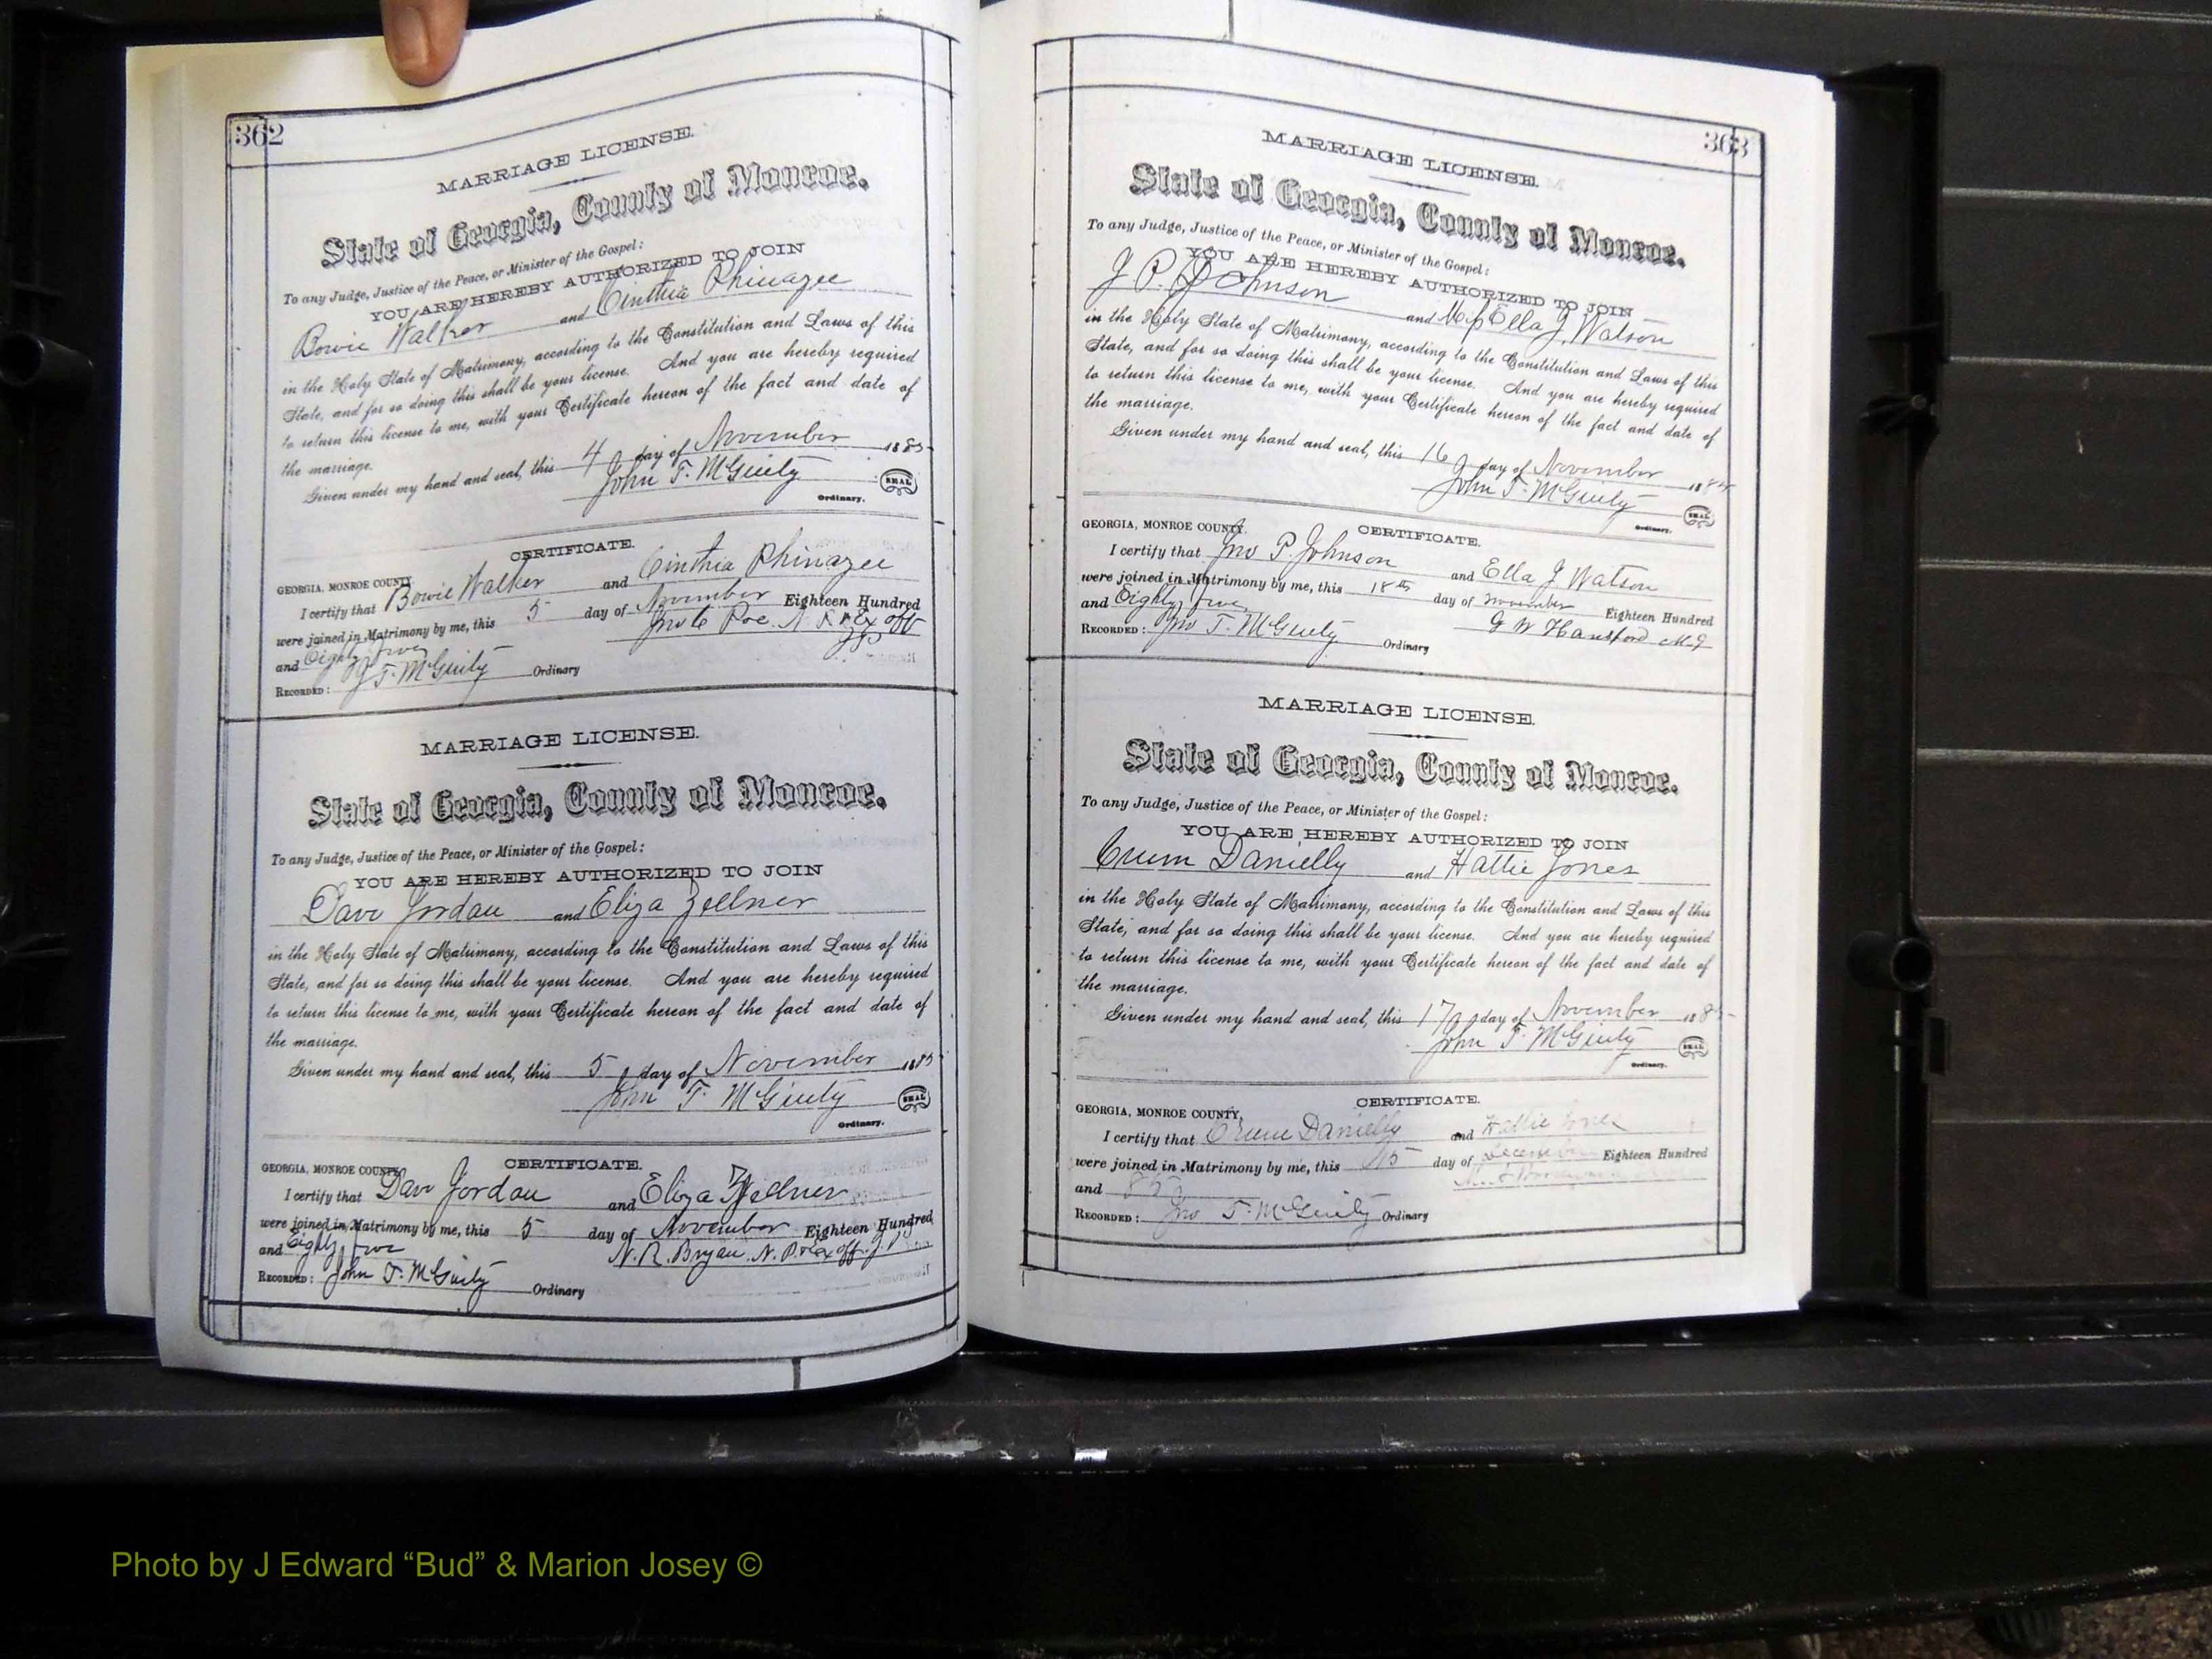 362
MARRIAGE LICENSE.
State of Georgia, County of Monroe.
To any Judge, Justice of the Peace, or Minister of the Gospel:
YOU ARE HEREBY AUTHORIZED TO JOIN
Bowie Walker and Cinthia Phinazee
in the Holy State of Matrimony, according to the Constitution and Laws of this
State, and for so doing this shall be your license. And you are hereby required
to return this license to me, with your Certificate hereon of the fact and date of
the marriage.
Given under my hand and seal, this 4 day of November 1885
John T. McGinty SEAL
Ordinary.
CERTIFICATE.
GEORGIA, MONROE COUNTY.
I certify that Bowie Walker and Cinthia Phinazee
were joined in Matrimony by me, this 5 day of November Eighteen Hundred
and Eighty five Jno C Poe. N P & Ex off
JP
RECORDED: J T. McGinty Ordinary
MARRIAGE LICENSE.
State of Georgia, County of Monroe.
To any Judge, Justice of the Peace, or Minister of the Gospel:
YOU ARE HEREBY AUTHORIZED TO JOIN
Dave Jordan and Eliza Zellner
in the Holy State of Matrimony, according to the Constitution and Laws of this
State, and for so doing this shall be your license. And you are hereby required
to return this license to me, with your Certificate hereon of the fact and date of
the marriage.
Given under my hand and seal, this 5 day of November 1885
John T. McGinty SEAL
Ordinary.
CERTIFICATE.
GEORGIA, MONROE COUNTY.
I certify that Dave Jordan and Eliza Zellner
were joined in Matrimony by me, this 5 day of November Eighteen Hundred
and Eighty five N. R. Bryan. N. P. & Ex off. J P
RECORDED: John T. McGinty Ordinary
363
MARRIAGE LICENSE.
State of Georgia, County of Monroe.
To any Judge, Justice of the Peace, or Minister of the Gospel:
YOU ARE HEREBY AUTHORIZED TO JOIN
J P. Johnson and Miss Ella J. Watson
in the Holy State of Matrimony, according to the Constitution and Laws of this
State, and for so doing this shall be your license. And you are hereby required
to return this license to me, with your Certificate hereon of the fact and date of
the marriage.
Given under my hand and seal, this 16 day of November 1885
John T. McGinty SEAL
Ordinary.
CERTIFICATE.
GEORGIA, MONROE COUNTY.
I certify that Jno P. Johnson and Ella J Watson
were joined in Matrimony by me, this 18th day of November Eighteen Hundred
and Eighty five G W Hansford M.G
RECORDED: Jno T. McGinty Ordinary
MARRIAGE LICENSE.
State of Georgia, County of Monroe.
To any Judge, Justice of the Peace, or Minister of the Gospel:
YOU ARE HEREBY AUTHORIZED TO JOIN
Crum Danielly and Hattie Jones
in the Holy State of Matrimony, according to the Constitution and Laws of this
State, and for so doing this shall be your license. And you are hereby required
to return this license to me, with your Certificate hereon of the fact and date of
the marriage.
Given under my hand and seal, this 17 day of November 1885
John T. McGinty SEAL
Ordinary.
CERTIFICATE.
GEORGIA, MONROE COUNTY,
I certify that Crum Danielly and Hattie Jones
were joined in Matrimony by me, this 15 day of December Eighteen Hundred
and
RECORDED: Jno T. McGinty Ordinary
Photo by J Edward “Bud” & Marion Josey ©